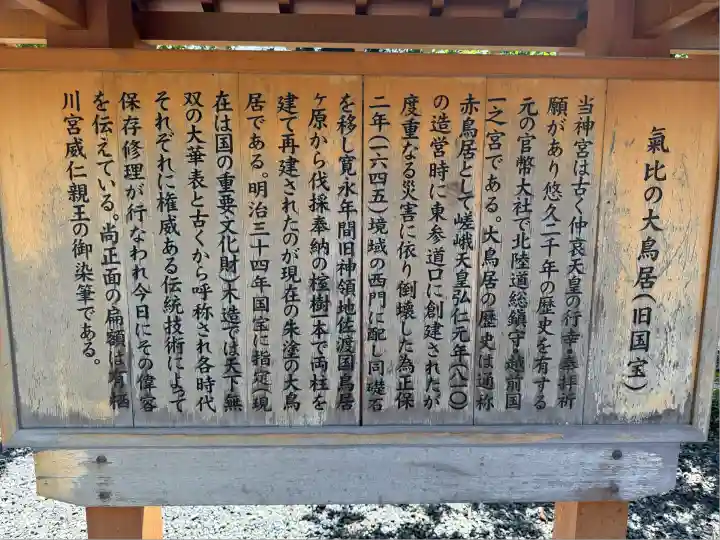 氣比の大鳥居(旧国宝)
当神宮は古く仲哀天皇の行幸・参拝祈
願があり悠久二千年の歴史を有する
元の官幣大社で北陸道総鎮守・越前国
一之宮である。大鳥居の歴史は通称
赤鳥居として嵯峨天皇弘仁元年(八一〇)
の造営時に東参道口に創建されたが
度重なる災害に依り倒壊した為正保
二年(一六四五)境域の西門に配し同礎石
を移し寛永年間旧神領地佐渡国鳥居
ヶ原から伐採奉納の榁樹一本で両柱を
建て再建されたのが現在の朱塗の大鳥
居である。明治三十四年国宝に指定(現
在は国の重要文化財)木造では天下無
双の大華表と古くから呼称され各時代
それぞれに権威ある伝統技術によって
保存修理が行なわれ今日にその偉容
を伝えている。尚正面の扁額は有栖
川宮威仁親王の御染筆である。